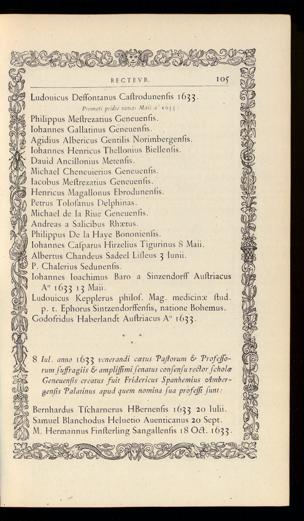 RECTEVR. 105
Ludouicus Deſſontanus Caſtrodunenſis 1633.
Promoti pridie nonas Maii aº 1633:
Philippus Meſtrezatius Geneuenſis.
Iohannes Gallatinus Geneuenſis.
Agidius Albericus Gentilis Norimbergenſis.
Iohannes Henricus Thellonius Biellenſis.
Dauid Ancillonius Metenſis.
Michael Cheneuierius Geneuenſis.
Iacobus Meſtrezatius Geneuenſis.
Henricus Magallonus Ebrodunenſis.
Petrus Toloſanus Delphinas.
Michael de la Riue Geneuenſis.
Andreas a Salicibus Rhætus.
Philippus De la Haye Bononienſis.
Iohannes Caſparus Hirzelius Tigurinus 8 Maii.
Albertus Chandeus Sadeel 3 Iunii.
P. Chalerius Sedunenſis.
Iohannes Ioachimus Baro a Sinzendorff Auſtriacus
Aº 1633 13 Maii.
Ludouicus Kepplerus philoſ. Mag. medicinæ ſtud.
p. t. Ephorus Sintzendorffenſis, natione Bohemus.
Godofridus Haberlandt Auſtriacus Aº 1633.
8 Iul. anno 1633 venerandi cœtus Paſtorum & Profeſſo-
rum ſuffragiis & ampliſſimi ſenatus conſenſu rector ſcholæ
Geneuenſis creatus fuit Fridericus Spanhemius Amber-
genſis Palatinus apud quem nomina ſua profeſſi ſunt:
Bernhardus Tſcharnerus HBernenſis 1633 20 Iulii.
Samuel Blanchodus Heluetio Auenticanus 20 Sept.
M. Hermannus Finſterling Sangallenſis 18 Oct. 1633.